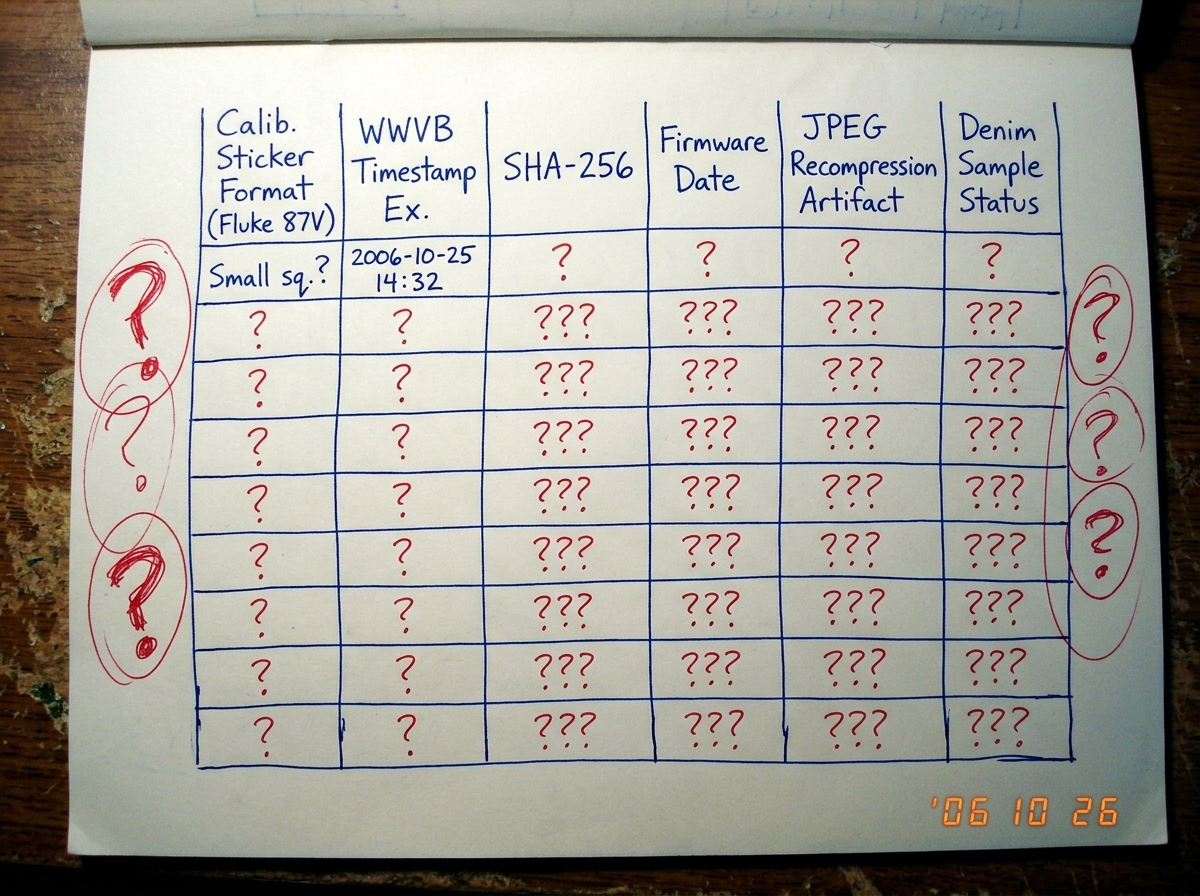 Calib.
Sticker
Format
(Fluke 87V)
WWVB
Timestamp
Ex.
SHA-256
Firmware
Date
JPEG
Recompression
Artifact
Denim
Sample
Status
Small sq.?
2006-10-25
14:32
? ? ? ?
? ? ??? ??? ??? ???
? ? ??? ??? ??? ???
? ? ??? ??? ??? ???
? ? ??? ??? ??? ???
? ? ??? ??? ??? ???
? ? ??? ??? ??? ???
? ? ??? ??? ??? ???
? ? ??? ??? ??? ???
?
?
?
?
?
?
'06 10 26